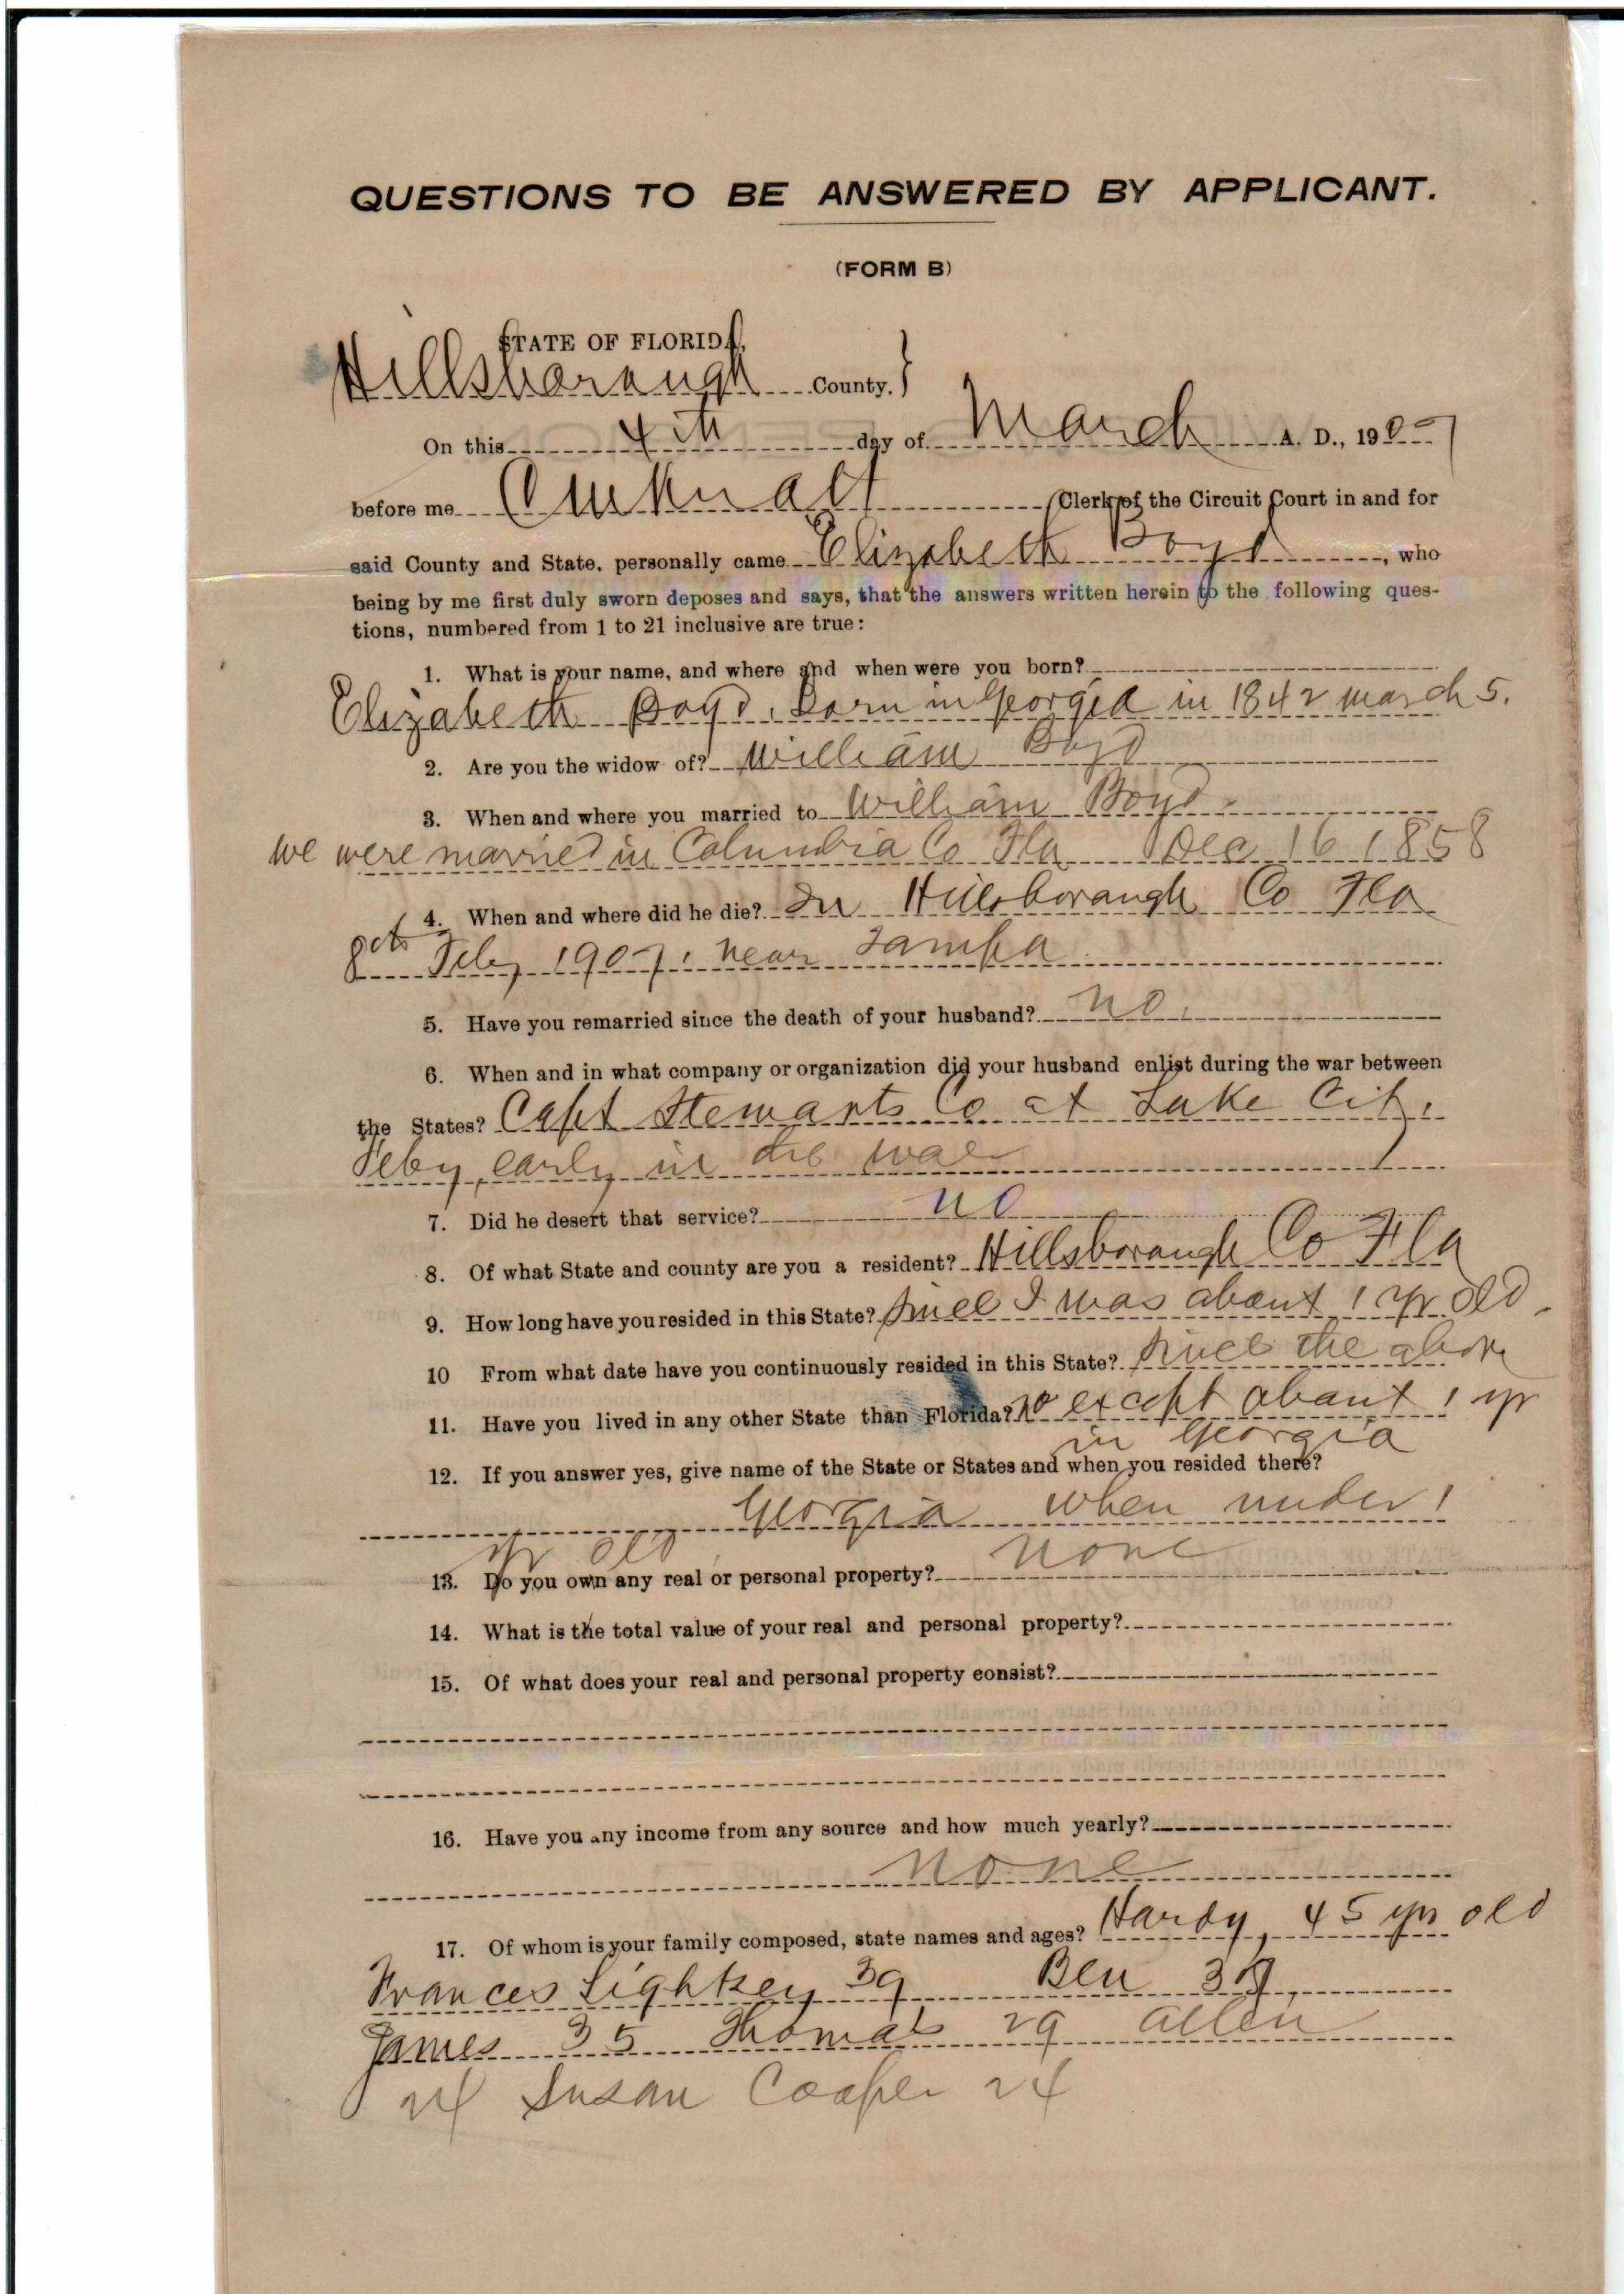 QUESTIONS TO BE ANSWERED BY APPLICANT.
(FORM B)
STATE OF FLORIDA,
Hillsborough County. }
On this 4th day of March A. D., 1907
before me Clerk of the Circuit Court in and for
said County and State, personally came Elizabeth Boyd, who
being by me first duly sworn deposes and says, that the answers written herein to the following ques-
tions, numbered from 1 to 21 inclusive are true:
1. What is your name, and where and when were you born?
Elizabeth Boyd. Born in Georgia in 1842 march 5.
2. Are you the widow of? William Boyd
3. When and where you married to William Boyd.
we were married in Columbia Co Fla Dec 16 1858
4. When and where did he die? In Hillsborough Co Fla
Feby 1907, near Tampa
5. Have you remarried since the death of your husband? no.
6. When and in what company or organization did your husband enlist during the war between
the States? Capt Stewarts Co at Lake City,
early in the war
7. Did he desert that service? no
8. Of what State and county are you a resident? Hillsborough Co Fla
9. How long have you resided in this State? Since I was about 1 yr old.
10 From what date have you continuously resided in this State? Since the above
11. Have you lived in any other State than Florida? No except about 1 yr
in Georgia
12. If you answer yes, give name of the State or States and when you resided there?
Georgia when under 1
yr old
13. Do you own any real or personal property? none
14. What is the total value of your real and personal property?
15. Of what does your real and personal property consist?
16. Have you any income from any source and how much yearly?
none
17. Of whom is your family composed, state names and ages? Hardy, 45 yrs old
Frances Lightsey 39 Ben
James 35 Thomas 29 Allen
24 Susan Cooper 24